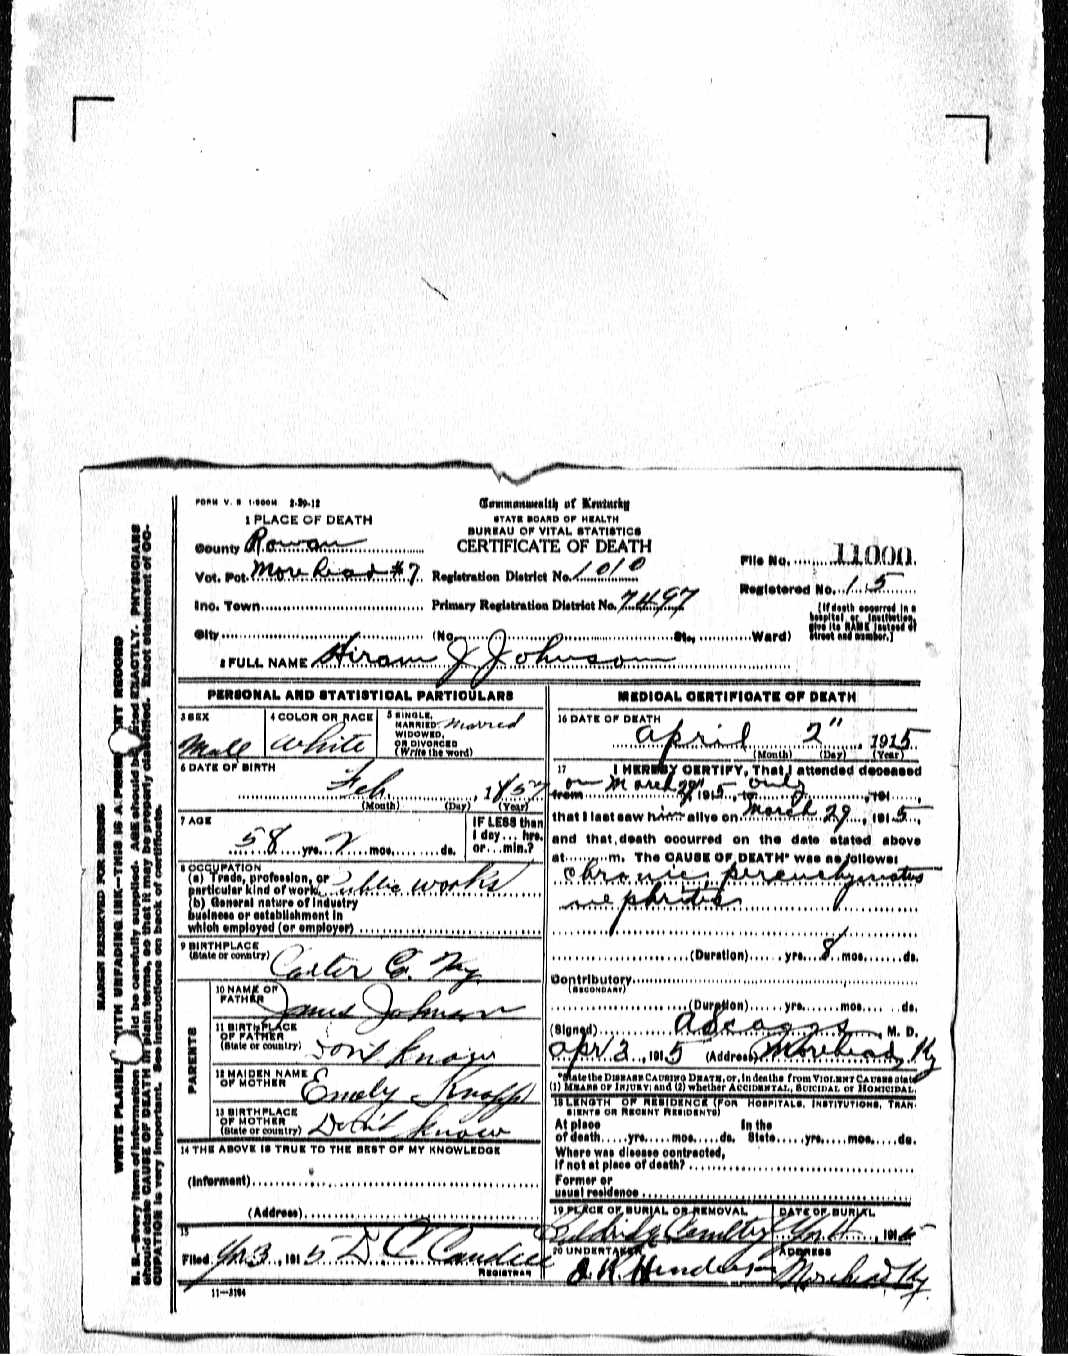 FORM V. S 1-500M 2-29-12
Commonwealth of Kentucky
STATE BOARD OF HEALTH
BUREAU OF VITAL STATISTICS
CERTIFICATE OF DEATH
1 PLACE OF DEATH
County Rowan
Vot. Pct. Morehead #7
Inc. Town
City
Registration District No. 1010
Primary Registration District No. 7497
(No. St., Ward)
File No. 11000
Registered No. 15
[If death occurred in a
hospital or institution,
give its NAME instead of
street and number.]
2 FULL NAME Hiram J Johnson
PERSONAL AND STATISTICAL PARTICULARS
3 SEX
Male
4 COLOR OR RACE
White
5 SINGLE,
MARRIED, Married
WIDOWED,
OR DIVORCED
(Write the word)
6 DATE OF BIRTH
Feb, 1857
(Month) (Day) (Year)
7 AGE
58 yrs. 2 mos. ds.
IF LESS than
1 day... hrs.
or... min.?
8 OCCUPATION
(a) Trade, profession, or
particular kind of work Public works
(b) General nature of industry
business or establishment in
which employed (or employer)
9 BIRTHPLACE
(State or country) Carter Co. Ky.
PARENTS
10 NAME OF
FATHER James Johnson
11 BIRTHPLACE
OF FATHER
(State or country) Dont Know
12 MAIDEN NAME
OF MOTHER Emely Knapp
13 BIRTHPLACE
OF MOTHER
(State or country) Dont Know
14 THE ABOVE IS TRUE TO THE BEST OF MY KNOWLEDGE
(Informant)
(Address)
15
Filed 3, 1915 D C Caudill
REGISTRAR
11-3184
MEDICAL CERTIFICATE OF DEATH
16 DATE OF DEATH
April 2", 1915
(Month) (Day) (Year)
17 I HEREBY CERTIFY, That I attended deceased
on
from March 29", 1915, to only, 191
that I last saw him alive on March 29, 1915,
and that death occurred on the date stated above
at m. The CAUSE OF DEATH* was as follows:
Chronic perenchymatus
nephritis
(Duration) yrs. 8 mos. ds.
Contributory
(SECONDARY)
(Duration) yrs. mos. ds.
(Signed) M. D.
Apr 2, 1915 (Address) Morehead, Ky
*State the DISEASE CAUSING DEATH, or, in deaths from VIOLENT CAUSES state
(1) MEANS OF INJURY; and (2) whether ACCIDENTAL, SUICIDAL or HOMICIDAL.
18 LENGTH OF RESIDENCE (FOR HOSPITALS, INSTITUTIONS, TRAN-
SIENTS OR RECENT RESIDENTS)
At place In the
of death yrs. mos. ds. State yrs. mos. ds.
Where was disease contracted,
if not at place of death?
Former or
usual residence
19 PLACE OF BURIAL OR REMOVAL
Cemetry
DATE OF BURIAL
, 1915
20 UNDERTAKER
Henderson
ADDRESS
Morehead Ky.
MARGIN RESERVED FOR BINDING
WRITE PLAINLY WITH UNFADING INK—THIS IS A PERMANENT RECORD
N. B.—Every item of information should be carefully supplied. AGE should be stated EXACTLY. PHYSICIANS
should state CAUSE OF DEATH in plain terms, so that it may be properly classified. Exact statement of OC-
CUPATION is very important. See instructions on back of certificate.